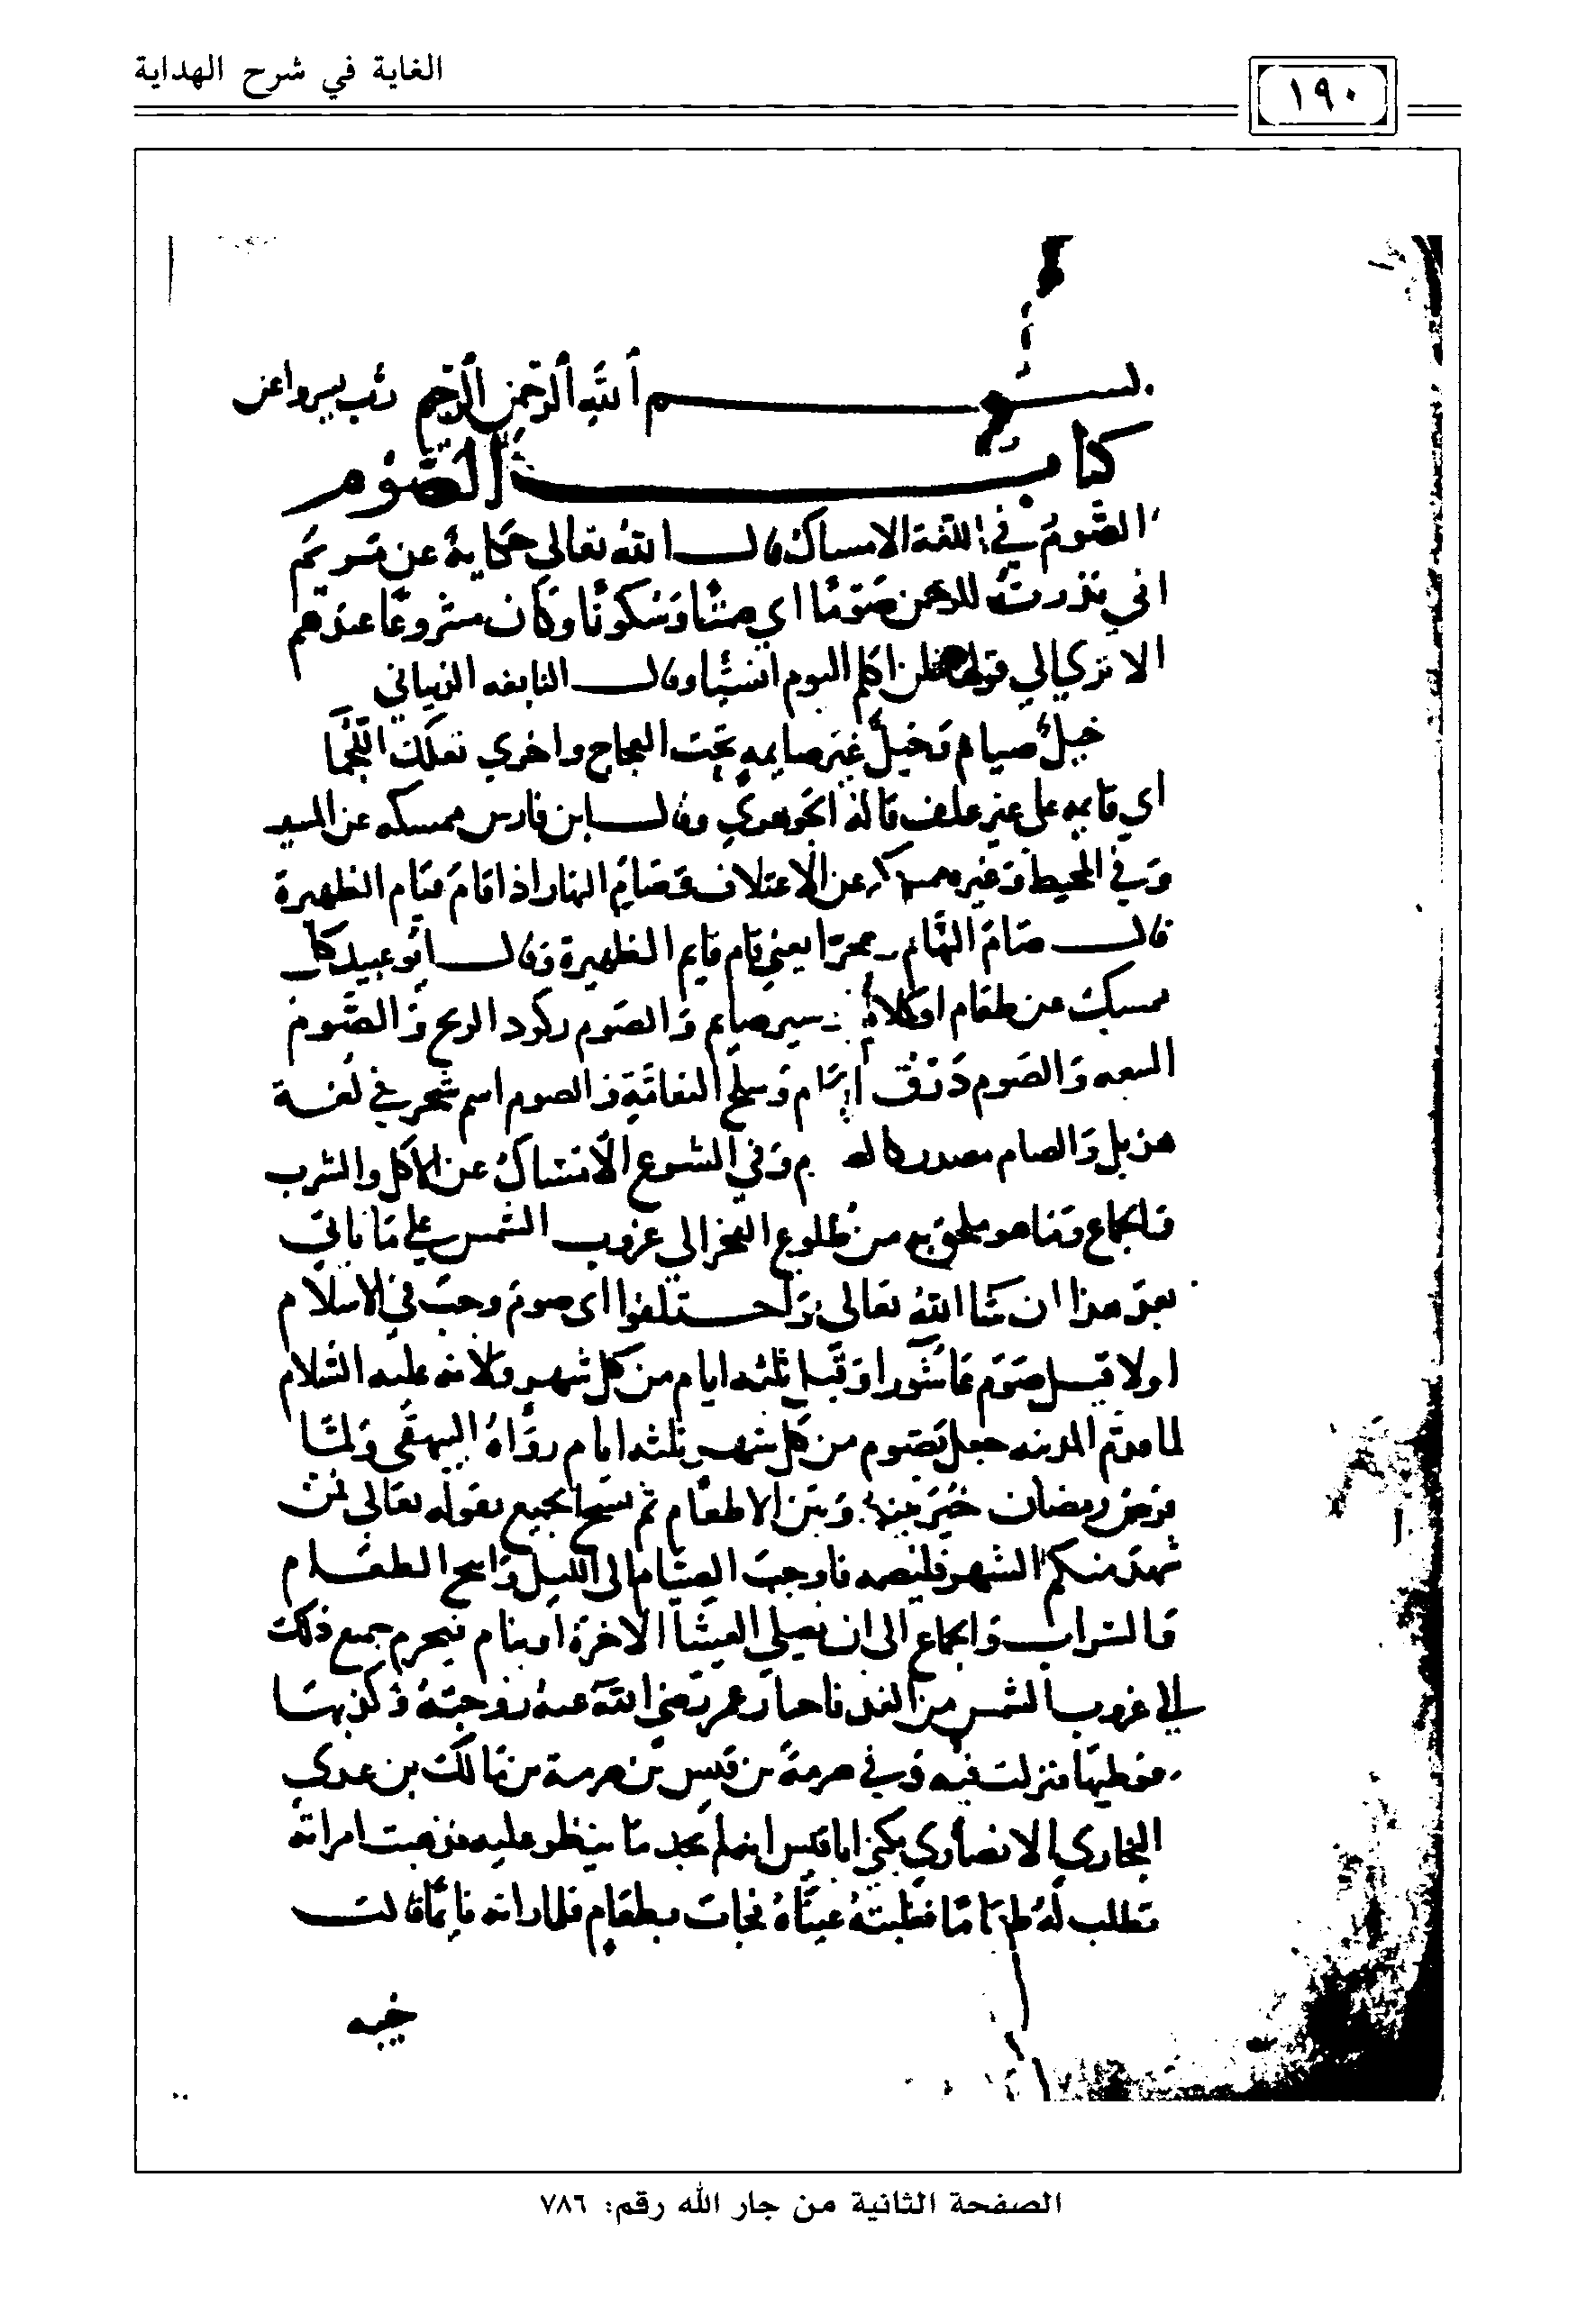 الغاية في شرح الهداية
١٩٠
بسم الله الرحمن الرحيم رب يسر واعن
كتاب الصوم
الصوم في اللغة الامساك قال الله تعالى حكاية عن مريم
اني نذرت للرحمن صوما اي صمتا وسكوتا وكان مشروعا عندهم
الا تري الي قولها فلن اكلم اليوم انسيا وقال النابغه الذبياني
خيل صيام وخيل غير صايمه تحت العجاج واخري تعلك اللجما
اي قايمه على غير علف قاله الجوهري وقال ابن فارس ممسكه عن السير
وفي المحيط وغيره ممسكة عن الاعتلاف وصام النهار اذا قام قيام الظهيرة
قال صام النهار وهجرا يعني قام قايم الظهيرة وقال ابو عبيد كل
ممسك عن طعام او كلام سير صايم والصوم ركود الريح والصوم
البيعه والصوم ذرق وسلح النعامة والصوم اسم شجر في لغة
هذيل والصام مصدر كال وفي الشرع الامساك عن الاكل والشرب
والجماع وما هو ملحق به من طلوع الفجر الى غروب الشمس علي ما ياتي
بعد هذا ان شا الله تعالى واختلفوا اى صوم وجب في الاسلام
اولا قيل صوم عاشورا وقيل ثلثه ايام من كل شهر ولانه عليه السلام
لما قدم المدينه جعل يصوم من كل شهر ثلثه ايام رواه البيهقي ولما
فرض رمضان خير بينه وبين الاطعام ثم نسخ الجميع بقوله تعالى فمن
شهد منكم الشهر فليصمه فاوجب الصيام الى الليل وابيح الطعام
والشراب والجماع الى ان يصلي العشا الاخرة او ينام فيحرم جميع ذلك
الي غروب الشمس من الغد عمر رضي الله عنه زوجته
فوطيها فنزلت فيه وفي صرمة بن قيس بن صرمة بن مالك بن عدي
النجاري الانصاري يكني ابا قيس انه لم يجد ما يفطر عليه فذهبت امراته
تطلب له طعاما فغلبته عيناه فجات بطعام فلما راته نايما قالت
خيبه
الصفحة الثانية من جار الله رقم: ٧٨٦